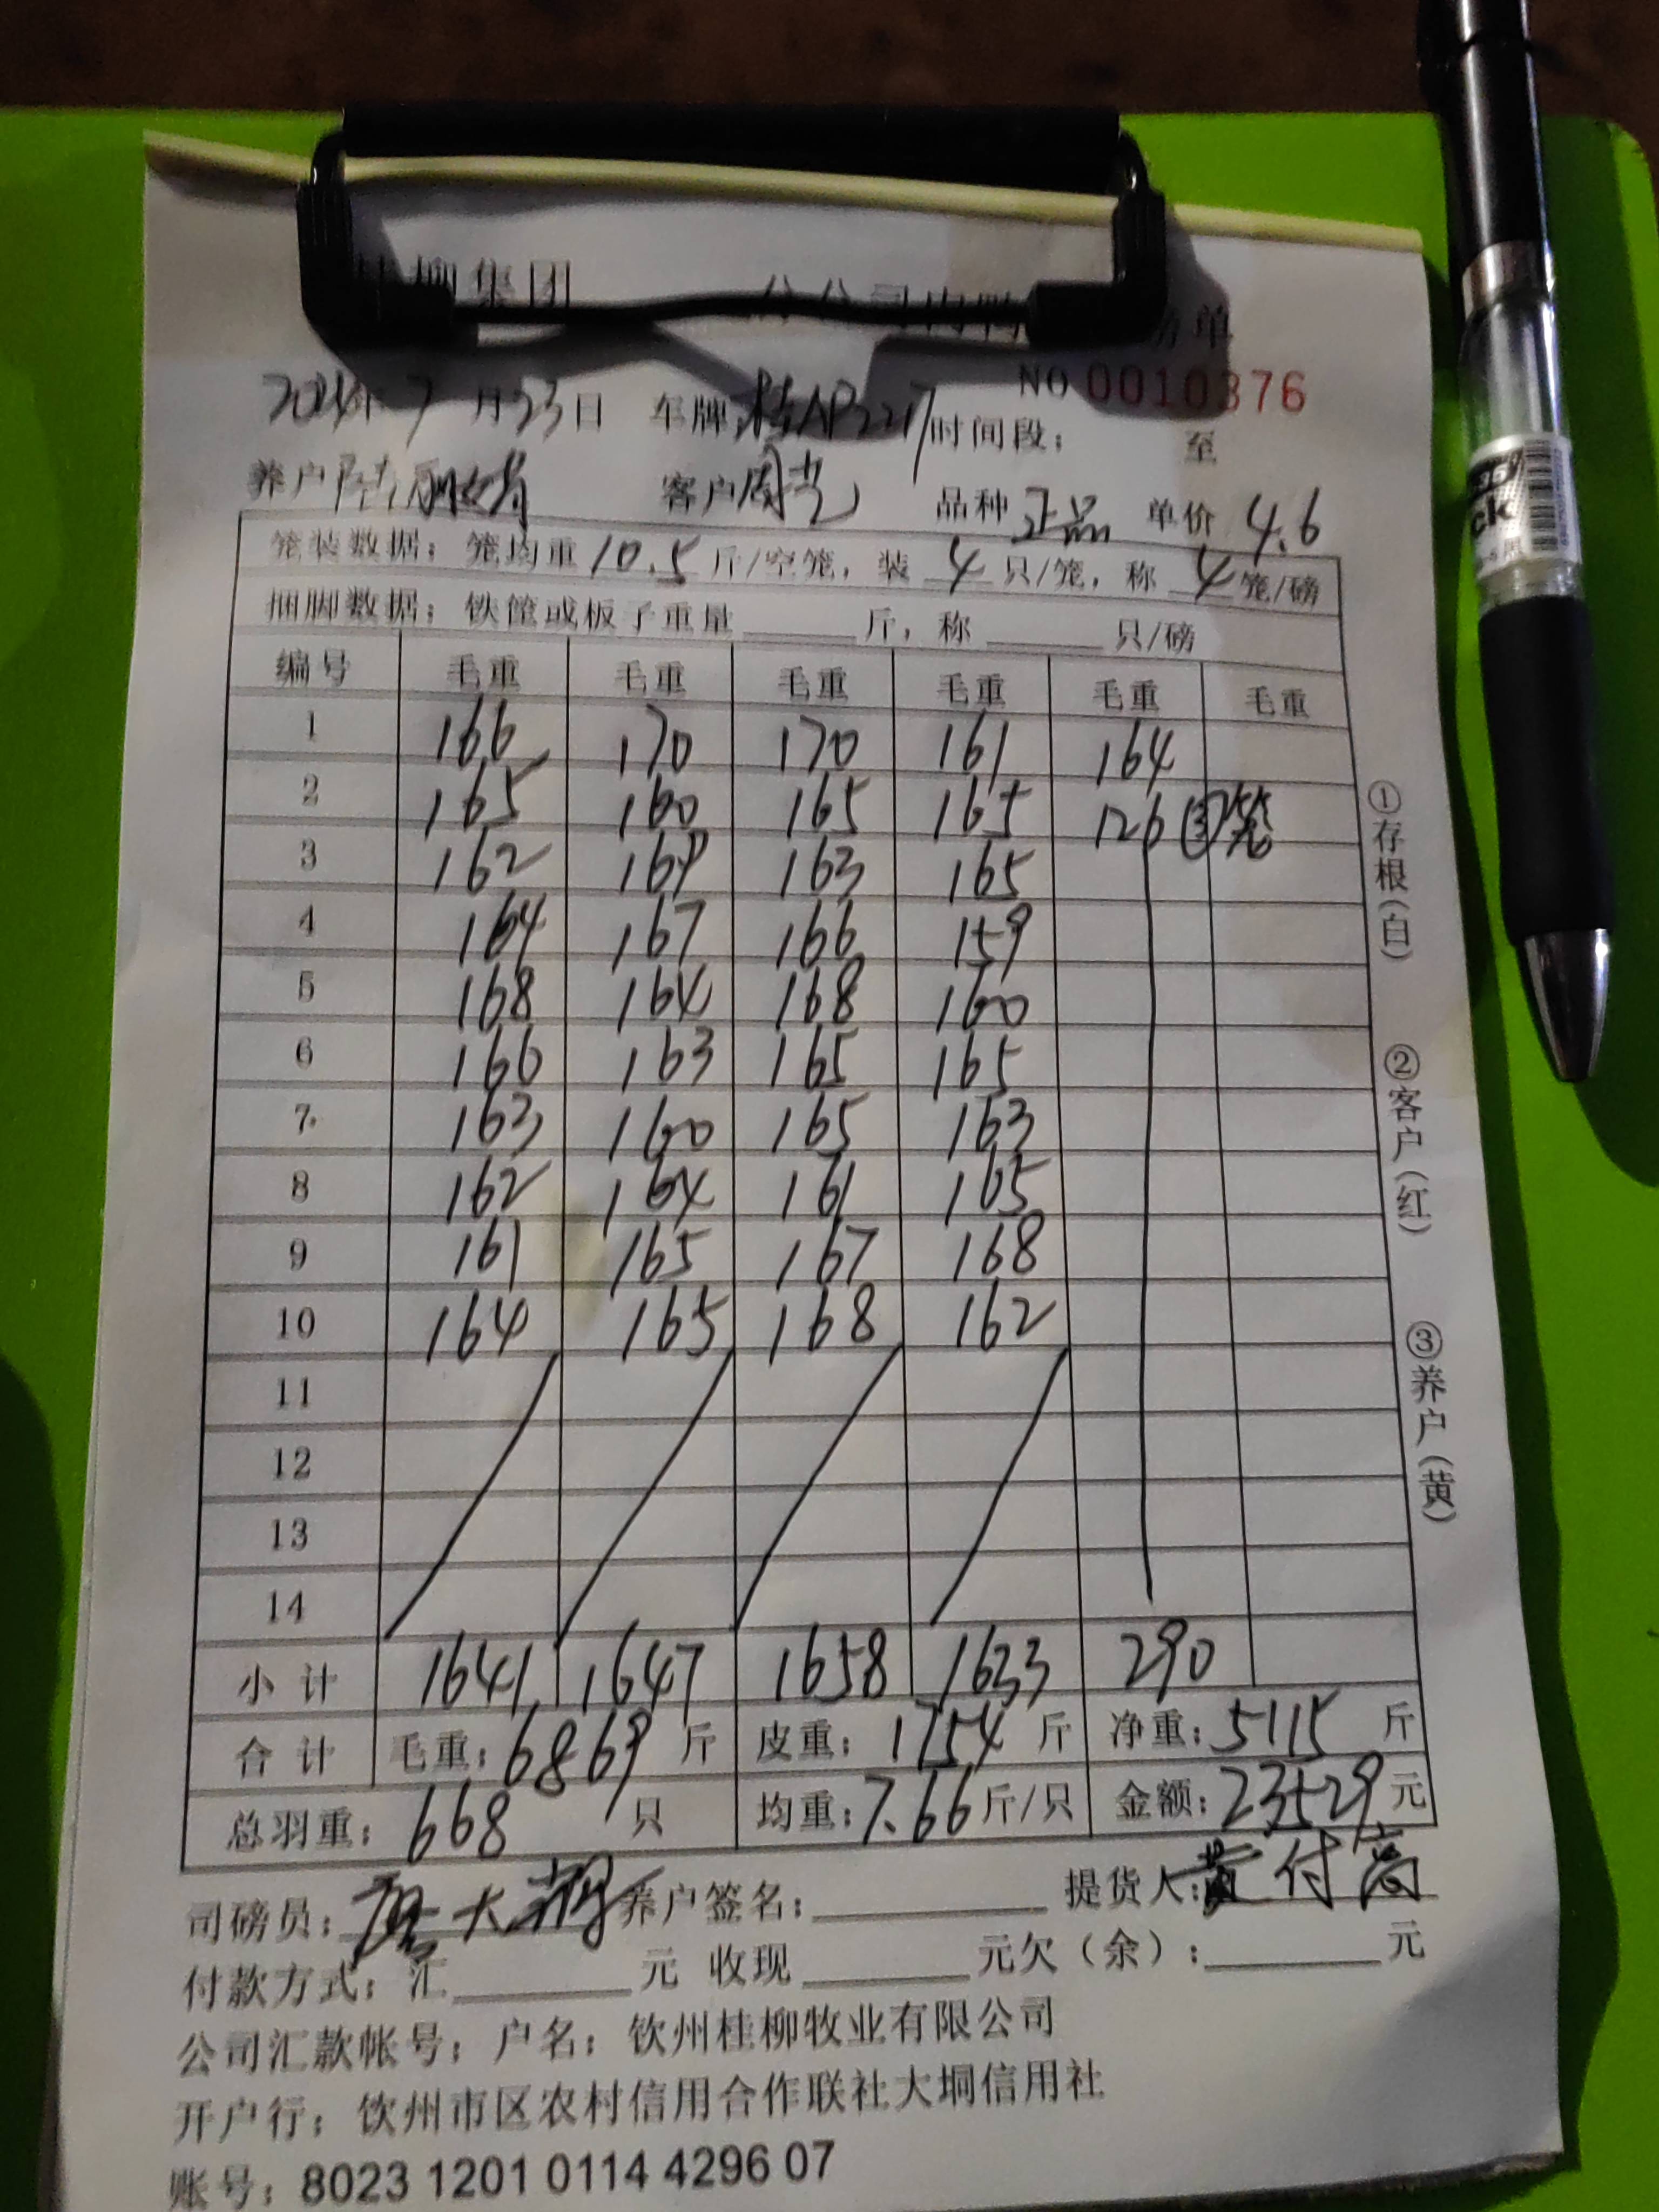 桂柳集团 分公司肉鸭 磅单
NO 0010376
2024年7月23日 车牌:桂AP2217 时间段: 至
养户 客户 周艺 品种 正品 单价 4.6
笼装数据:笼均重10.5斤/空笼,装 4 只/笼,称 4 笼/磅
捆脚数据:铁筐或板子重量 斤,称 只/磅
编号 毛重 毛重 毛重 毛重 毛重 毛重
1 166 170 170 161 164
2 165 160 165 165 126 ③笼
3 162 169 163 165
4 164 167 166 159
5 168 164 168 160
6 166 163 165 165
7 163 160 165 163
8 162 164 161 165
9 161 165 167 168
10 164 165 168 162
11
12
13
14
小计 1641 1647 1658 1633 290
合计 毛重:6869 斤 皮重:1754 斤 净重:5115 斤
总羽重:668 只 均重:7.66 斤/只 金额:23529 元
司磅员: 养户签名: 提货人:黄付高
付款方式:汇 元 收现 元欠(余): 元
公司汇款帐号:户名:钦州桂柳牧业有限公司
开户行:钦州市区农村信用合作联社大垌信用社
账号:8023 1201 0114 4296 07
①存根(白) ②客户(红) ③养户(黄)